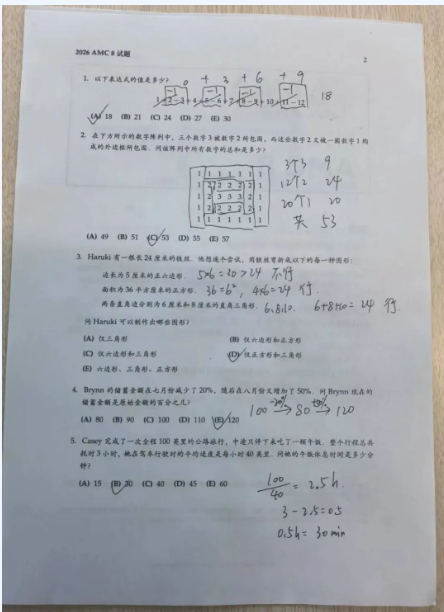 2026 AMC 8 试题
2
1. 以下表达式的值是多少?
0 + 3 + 6 + 9
-1 -1 -1 -1
18
(A) 18 (B) 21 (C) 24 (D) 27 (E) 30
2. 在下方所示的数字阵列中，三个数字 3 被数字 2 所包围，而这些数字 2 又被一圈数字 1 构
成的外边框所包围。问该阵列中所有数字的总和是多少?
1 1 1 1 1 1 1
1 2 2 2 2 2 1
1 2 3 3 3 2 1
1 2 2 2 2 2 1
1 1 1 1 1 1 1
3个3 9
12个2 24
20个1 20
共 53
(A) 49 (B) 51 (C) 53 (D) 55 (E) 57
3. Haruki 有一根长 24 厘米的铁丝。他想逐个尝试，用铁丝弯折成以下的每一种图形:
边长为 5 厘米的正六边形. 5×6=30>24 不行
面积为 36 平方厘米的正方形. 36=6², 4×6=24 行.
两条直角边分别为 6 厘米和 8 厘米的直角三角形. 6.8.10. 6+8+10=24 行.
问 Haruki 可以制作出哪些图形?
(A) 仅三角形 (B) 仅六边形和正方形
(C) 仅六边形和三角形 (D) 仅正方形和三角形
(E) 六边形、三角形、正方形
4. Brynn 的储蓄金额在七月份减少了 20%，随后在八月份又增加了 50%. 问 Brynn 现在的
储蓄金额是原始金额的百分之几?
100 -20%→ 80 +50%→ 120
(A) 80 (B) 90 (C) 100 (D) 110 (E) 120
5. Casey 完成了一次全程 100 英里的公路旅行，中途只停下来吃了一顿午餐. 整个行程总共
耗时 3 小时，她在驾车行驶时的平均速度是每小时 40 英里. 问她的午餐休息时间是多少分
钟?
(A) 15 (B) 30 (C) 40 (D) 45 (E) 60
100/40 = 2.5h.
3-2.5=0.5
0.5h = 30min